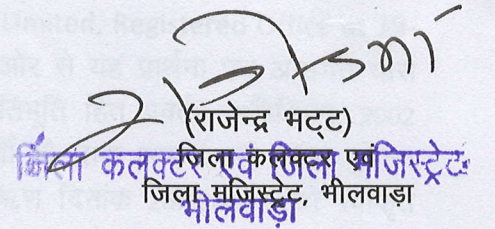 (राजेन्द्र भट्ट)
जिला कलक्टर एवं
जिला मजिस्ट्रेट, भीलवाड़ा
जिला कलक्टर एवं जिला मजिस्ट्रेट
भीलवाड़ा